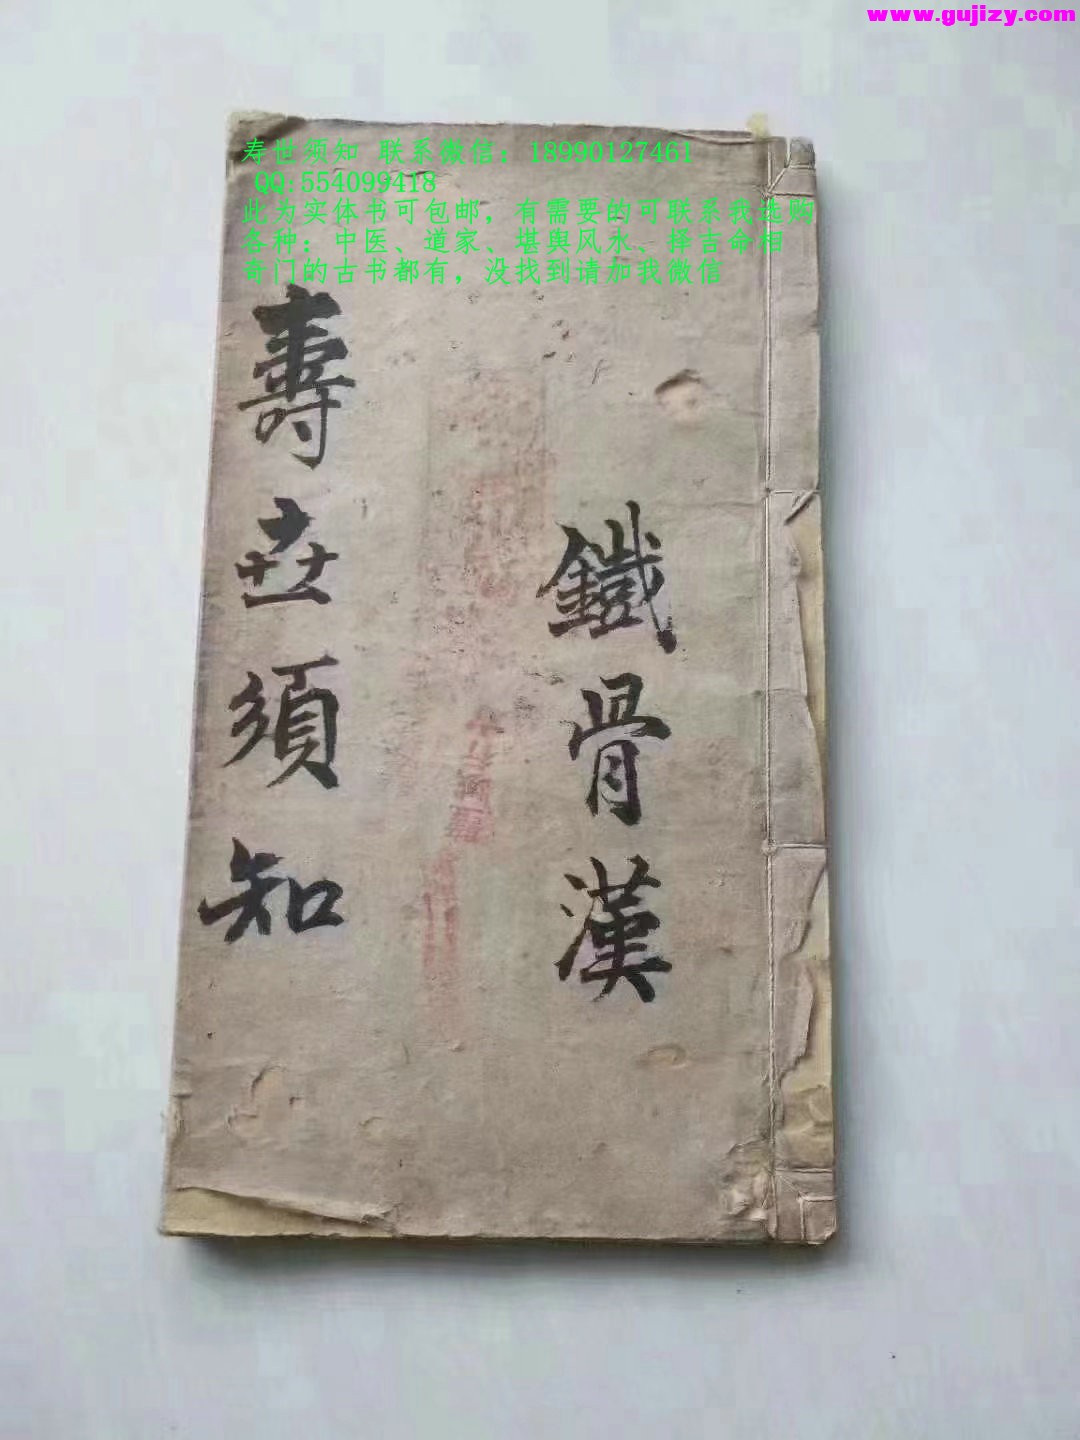 www.gujizy.com
寿世须知 联系微信：18990127461
QQ:554099418
此为实体书可包邮，有需要的可联系我选购
各种：中医、道家、堪舆风水、择吉命相
奇门的古书都有，没找到请加我微信
鐵骨漢
壽世須知